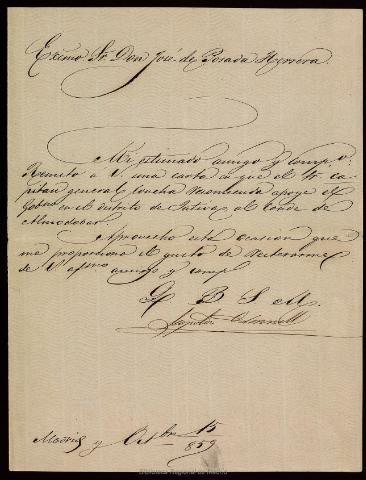 Exmo Sr. Don José de Posada Herrera.
Mi estimado amigo y compo:
Remito a V. una carta en que el Sr. ca-
pitan general Concha recomienda apoye el
Gobno en el distrito de al Conde de
Almodobar.
Aprovecho esta ocasión que
me proporciona el gusto de reiterarme
de V. afmo amigo y comp
Q B S M.
Madrid y Obre 15
859
Biblioteca Regional de Madrid